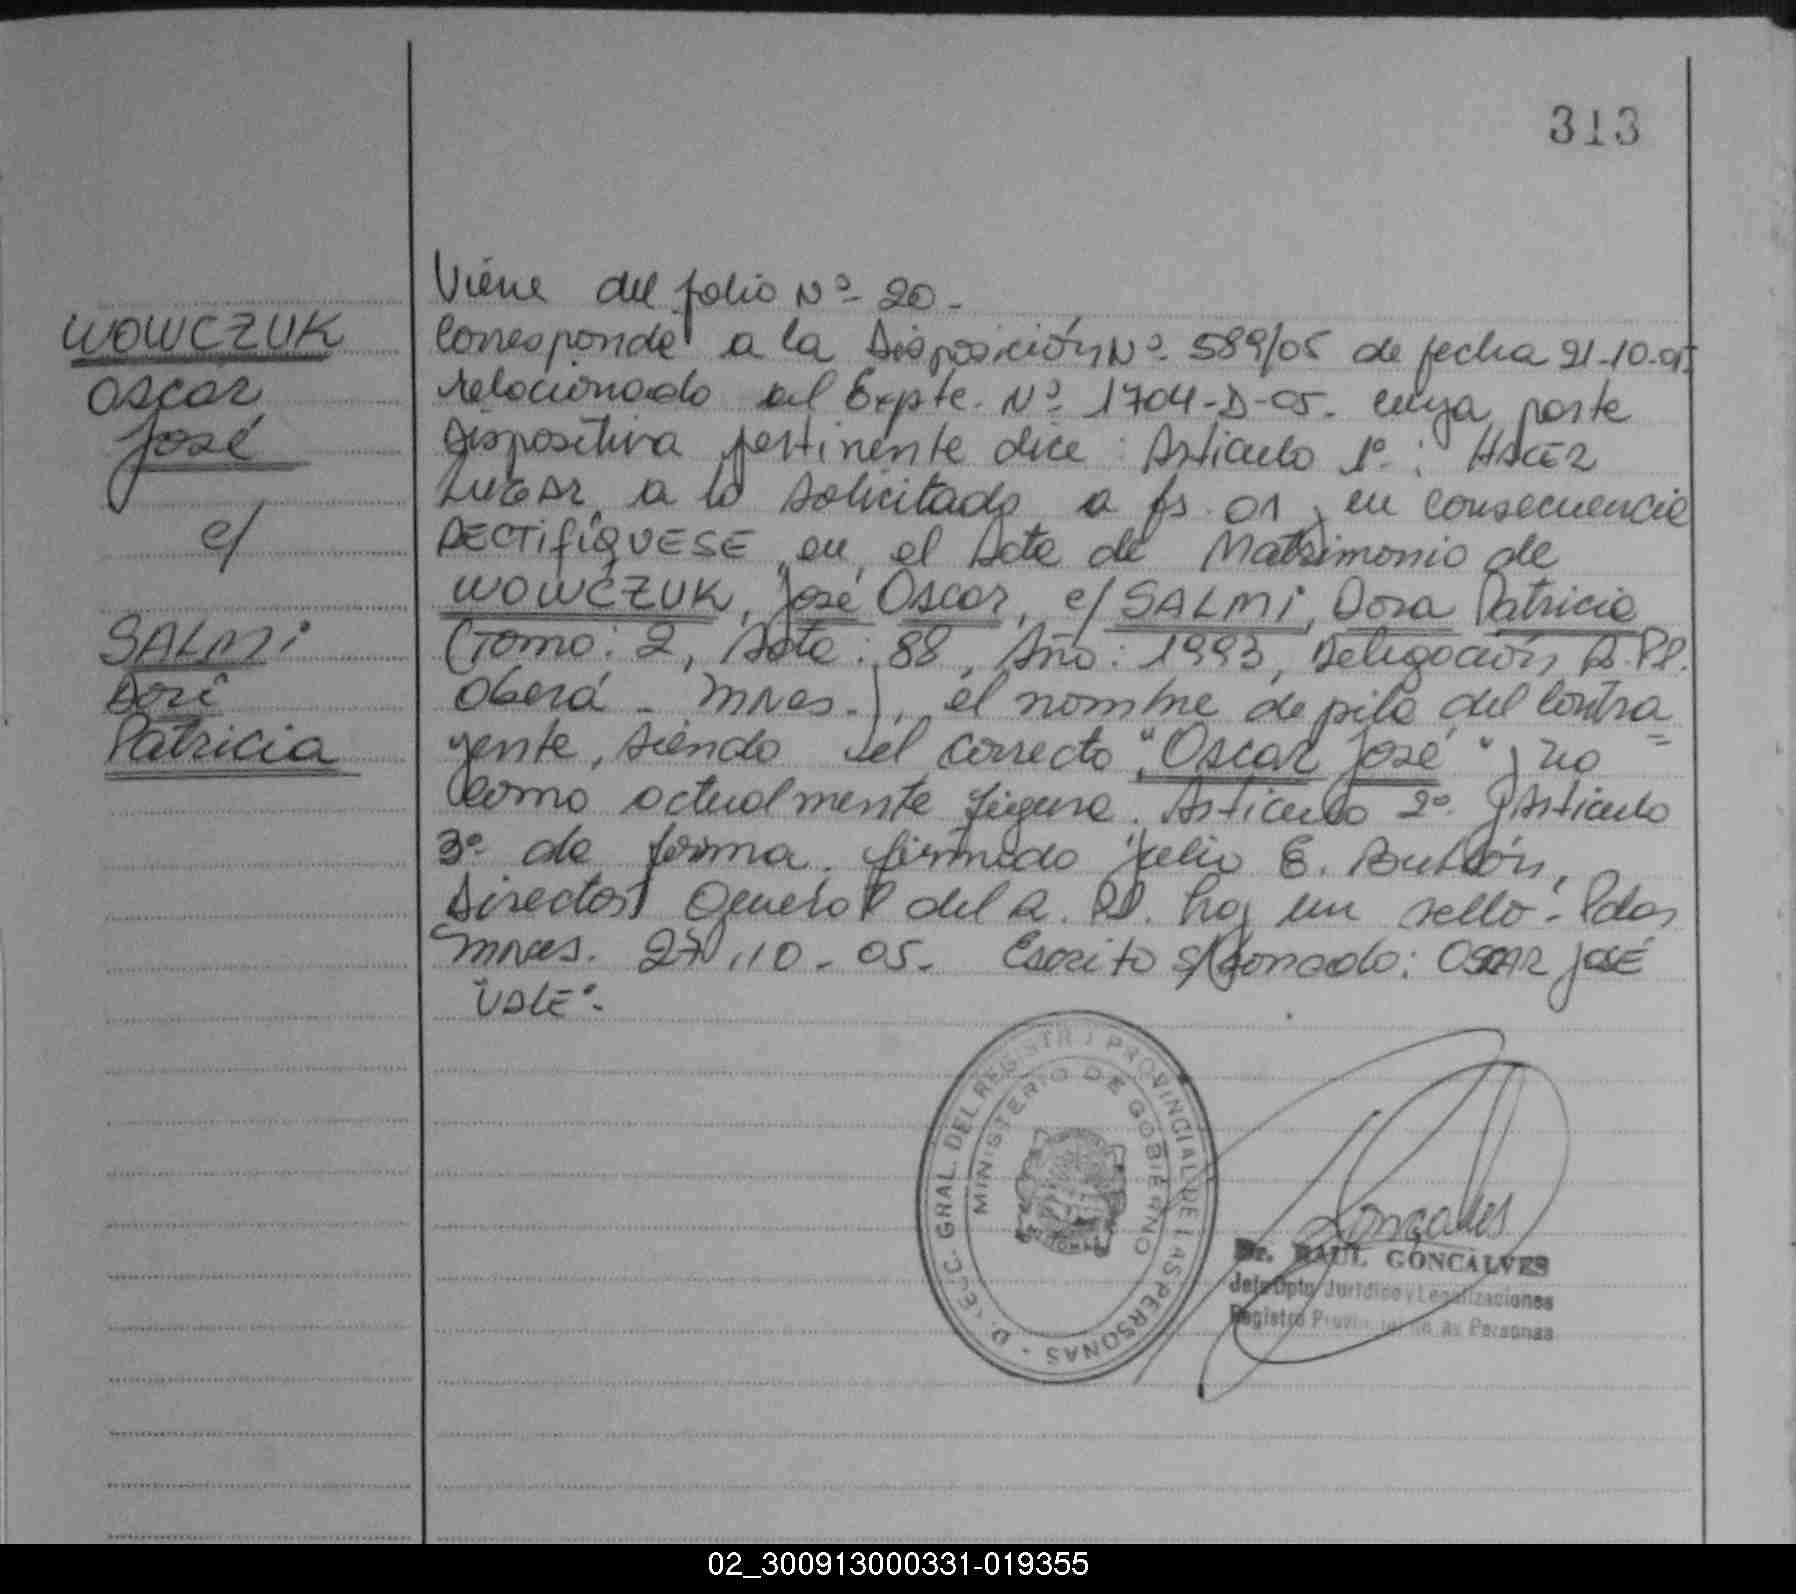 313
WOWCZUK
Oscar
José
c/
SALMI
Dora
Patricia
Viene del folio Nº 20-
Corresponde a la Disposición Nº 589/05 de fecha 21-10-05
relacionado al Expte. Nº 1704-D-05. cuya parte
dispositiva pertinente dice: Artículo 1º: HACER
LUGAR a lo solicitado a fs. 01 y en consecuencia
RECTIFÍQUESE en el Acta de Matrimonio de
WOWCZUK, José Oscar, c/ SALMI, Dora Patricia
(Tomo: 2, Acta: 88, Año: 1993, Delegación R.P.P.
Oberá - Mnes.), el nombre de pila del contra
yente, siendo el correcto "Oscar José" y no
como actualmente figura. Artículo 2º y Artículo
3º de forma. firmado Julio E.
Director General del R.P.P. hay un sello - Pdas
Mnes. 27-10-05. Escrito s/ : OSCAR JOSÉ
"VALE".
DIREC. GRAL. DEL REGISTRO PROVINCIAL DE LAS PERSONAS
MINISTERIO DE GOBIERNO
MISIONES
Goncalves
Dr. RAUL GONCALVES
Jefe Dpto Jurídico y Legalizaciones
Registro Provincial de las Personas
02_300913000331-019355